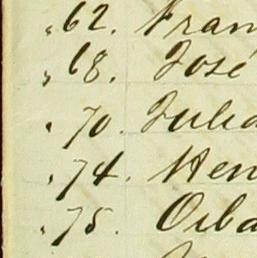 "62. Fran
"68. José
" 70. Julia
" 74. Hen
" 75. Urba